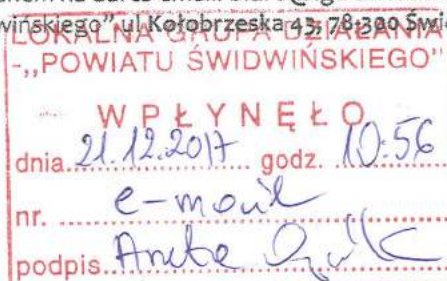 wińskiego" ul Kołobrzeska 43, 78-300 Świd
LOKALNA GRUPA DZIAŁANIA
-„POWIATU ŚWIDWIŃSKIEGO"
WPŁYNĘŁO
dnia 21.12.2017 godz. 10:56
nr. e-mail
podpis. Aneta